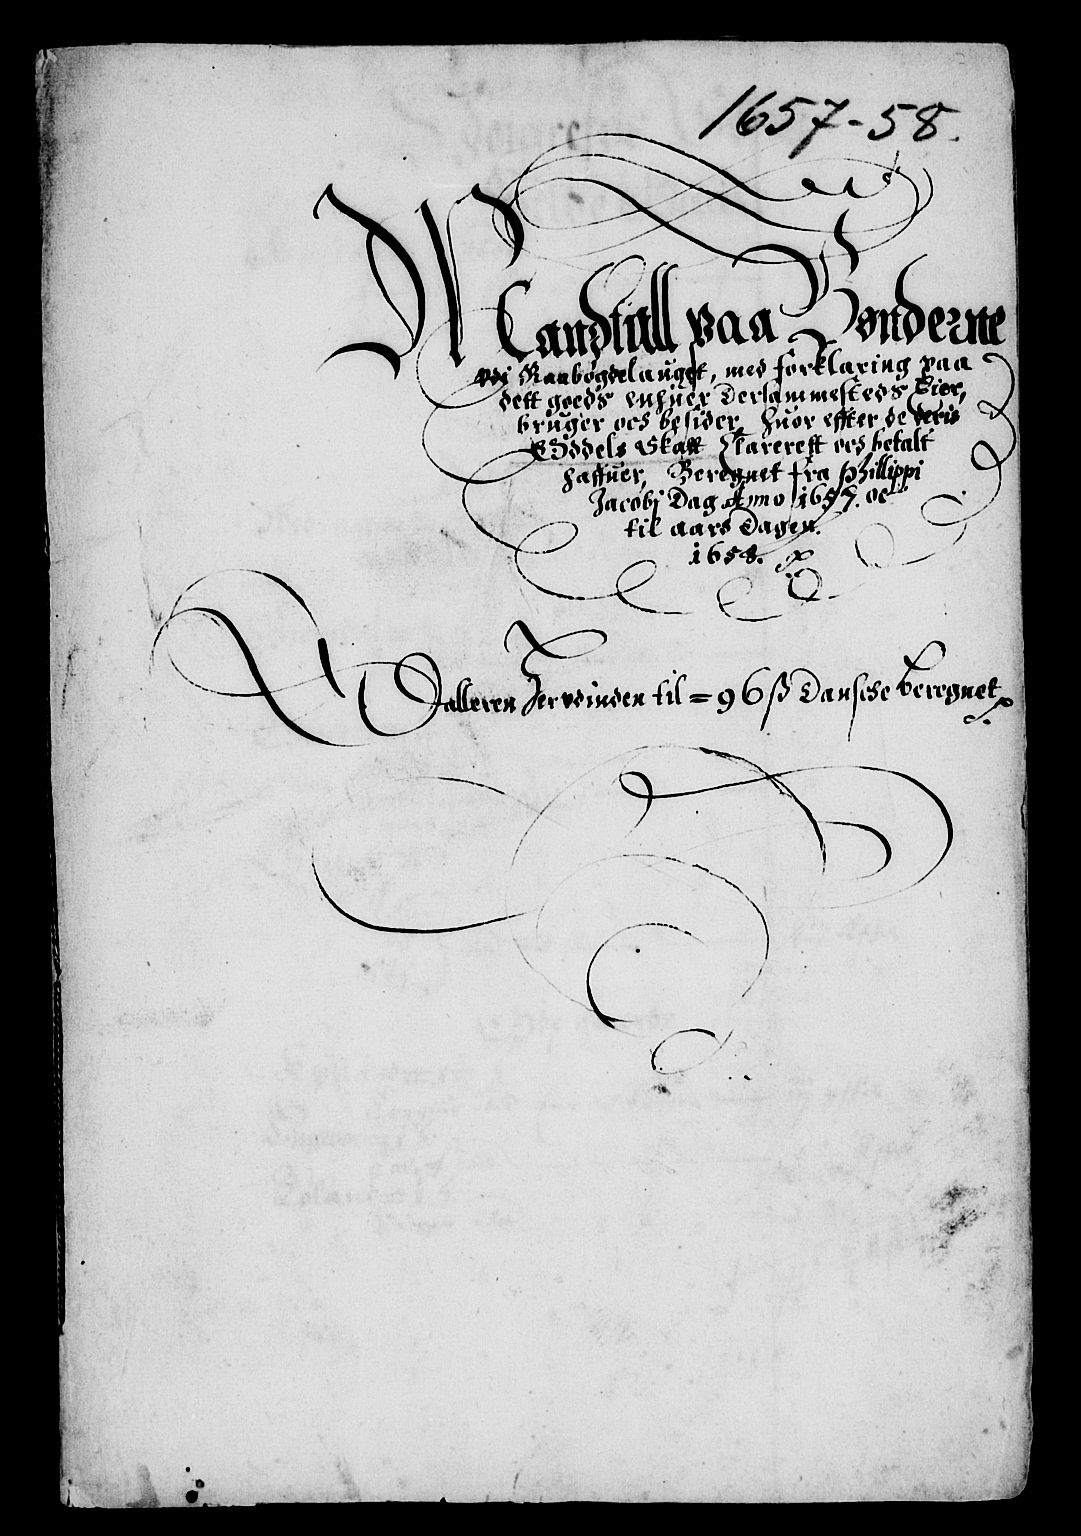 1657-58.
Mandtall paa Bønderne
vdj Raabøgdelauget, med forklaring paa
dett goeds enhuer dersammesteds Eier,
bruger och besider, huor effter de deris
Oddels Skatt klarerett och betalt
haffuer, Beregnet fra Phillippi
Jacobj Dag Anno 1657. oc
til aars Dagen.
1658.
Dalleren herudinden til = 96 ß Dansche beregnet